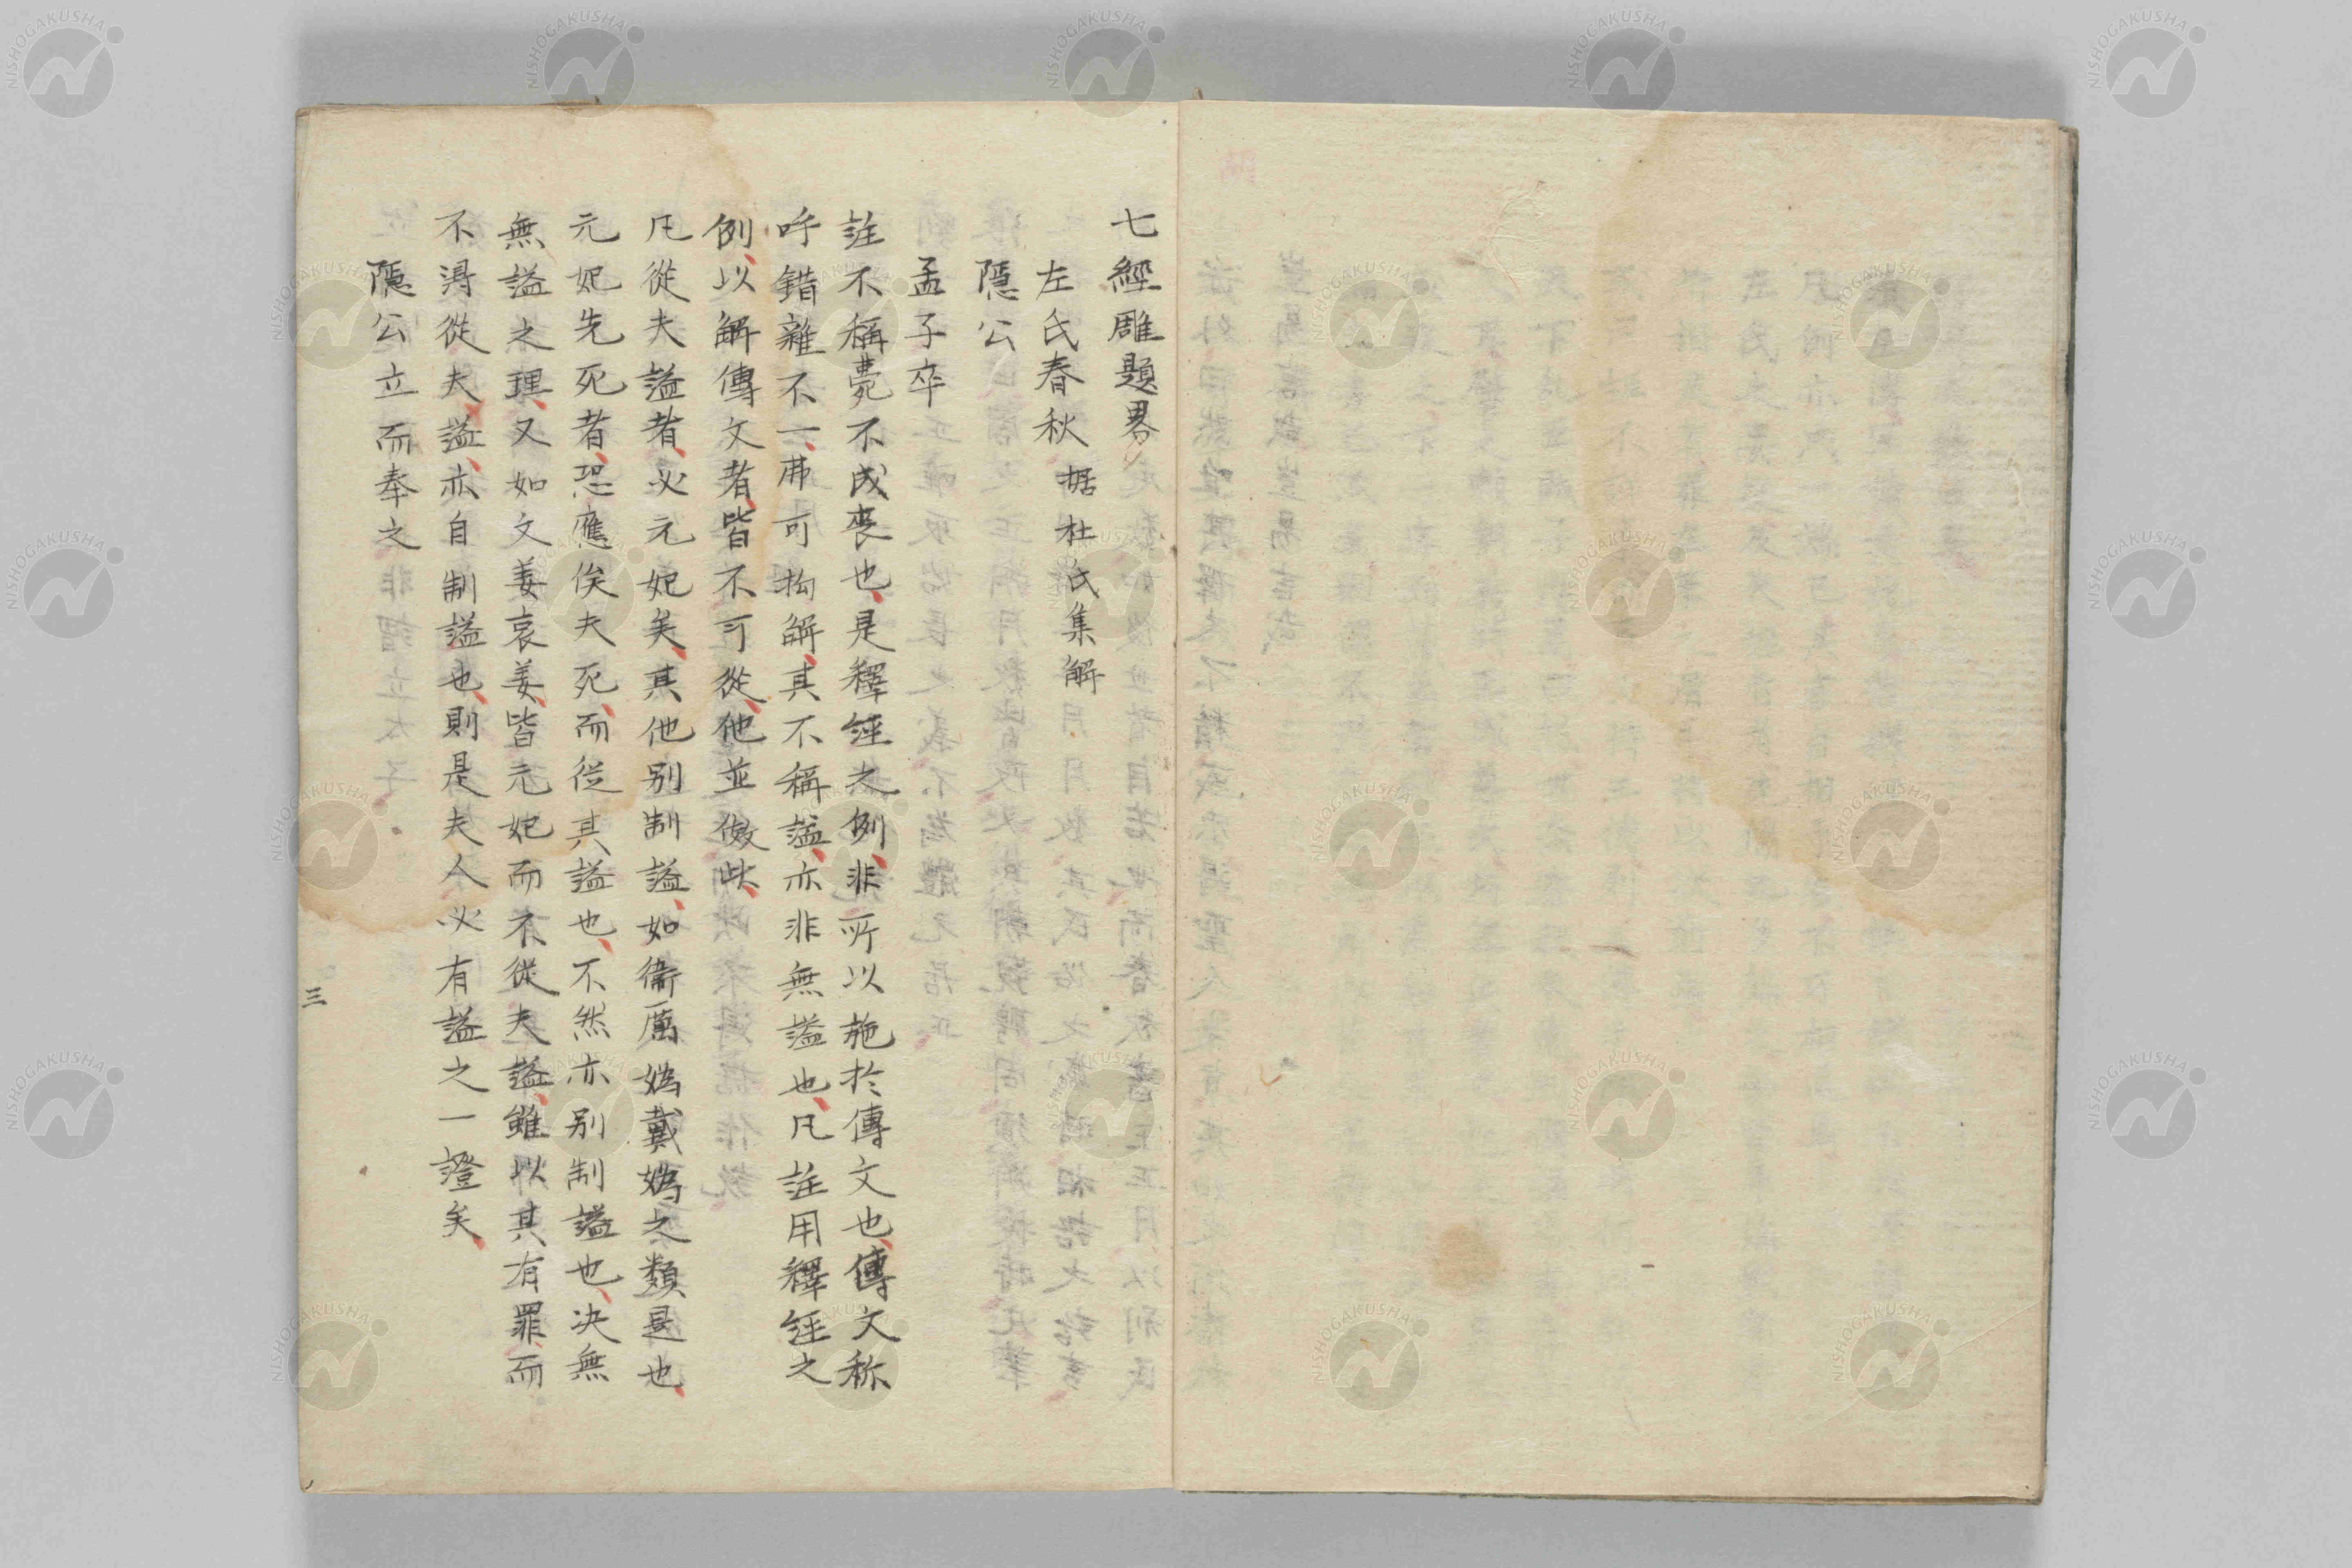 七經雕題畧
左氏春秋 据杜氏集解
隱公
孟子卒
註不稱薨不成喪也、是釋經之例、非所以施於傳文也、傳文称
呼錯雜不一、弗可拘解、其不稱謚、亦非無謚也、凡註用釋經之
例、以解傳文者、皆不可從、他並倣此、
凡從夫謚者、必元妃矣、其他別制謚、如衞厲嬀戴嬀之類是也、
元妃先死者、恐應俟夫死、而從其謚也、不然亦別制謚也、決無
無謚之理、又如文姜哀姜、皆元妃而不從夫謚、雖以其有罪而
不得從夫謚、亦自制謚也、則是夫人必有謚之一證矣、
隱公立而奉之
三